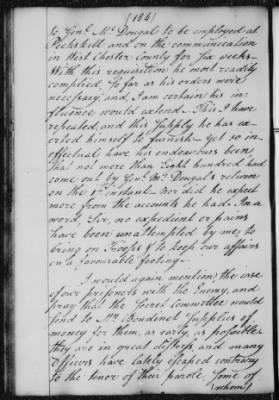 (184)
to Genl. Mc. Dougal to be employed at
Peekskill and on the communication
in West Chester County for six weeks.
With this requisition he most readily
complied, so far as his orders were
necessary, and, I am certain his in-
fluence would extend. This I have
repeated, and this supply he has ex-
erted himself to furnish. Yet so in-
effectual have his endeavours been
that not more than Eight hundred had
come out by Genl. Mc. Dougal's return
on the 1st. instant. Nor did he expect
more from the accounts he had. In a
word, Sir, no expedient or pains
have been unattempted by me, to
bring on Troops & to keep our affairs
on a favourable footing.
I would again mention the case
of our prisoners with the Enemy, and
pray that the Secret Committee would
send to Mr. Boudinot supplies of
money for them, as early, as possible
they are in great distress, and many
Officers have lately escaped contrary
to the tenor of their parole. Some of
(whom